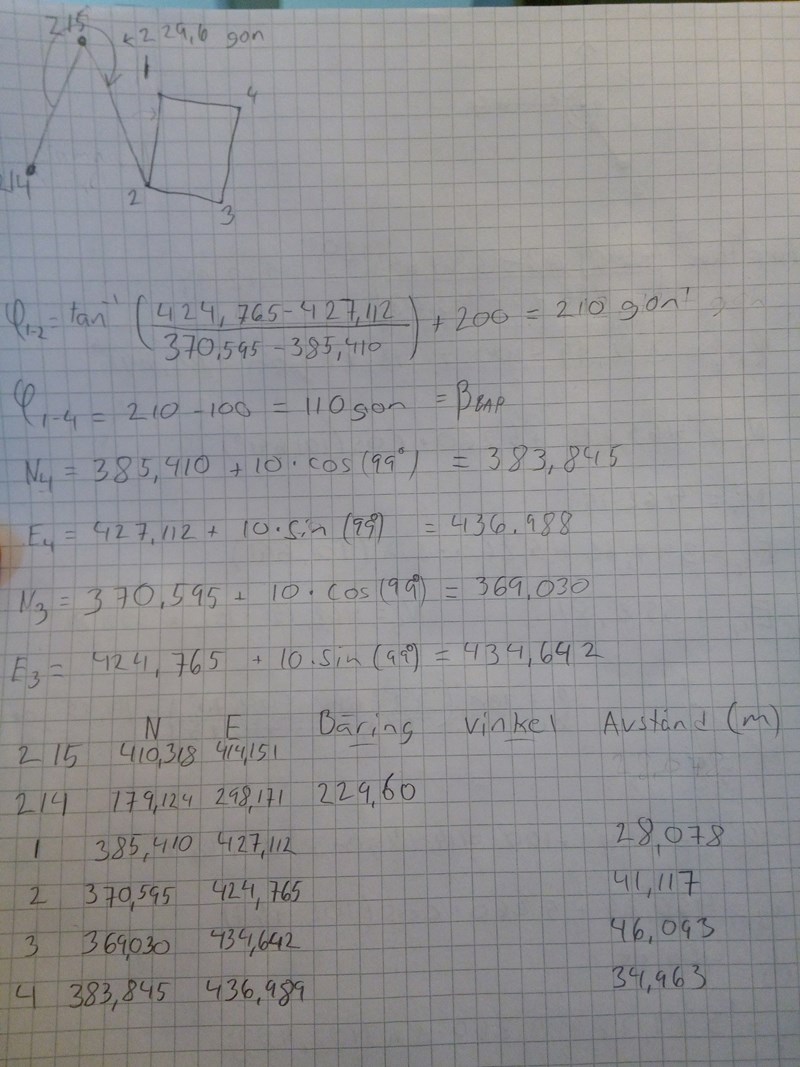 215
229,6 gon
1
4
214
2
3
φ₁₋₂ = tan⁻¹ (424,765-427,112 / 370,595-385,410) + 200 = 210 gon
φ₁₋₄ = 210-100 = 110 gon = β
N₄ = 385,410 + 10·cos(99°) = 383,845
E₄ = 427,112 + 10·sin(99°) = 436.988
N₃ = 370,595 + 10·cos(99°) = 369,030
E₃ = 424,765 + 10·sin(99°) = 434,642
N E Bäring Vinkel Avstånd (m)
215 410,318 414,151
214 179,124 298,171 229,60
1 385,410 427,112 28,078
2 370,595 424,765 41,117
3 369,030 434,642 46,093
4 383,845 436,989 34,963